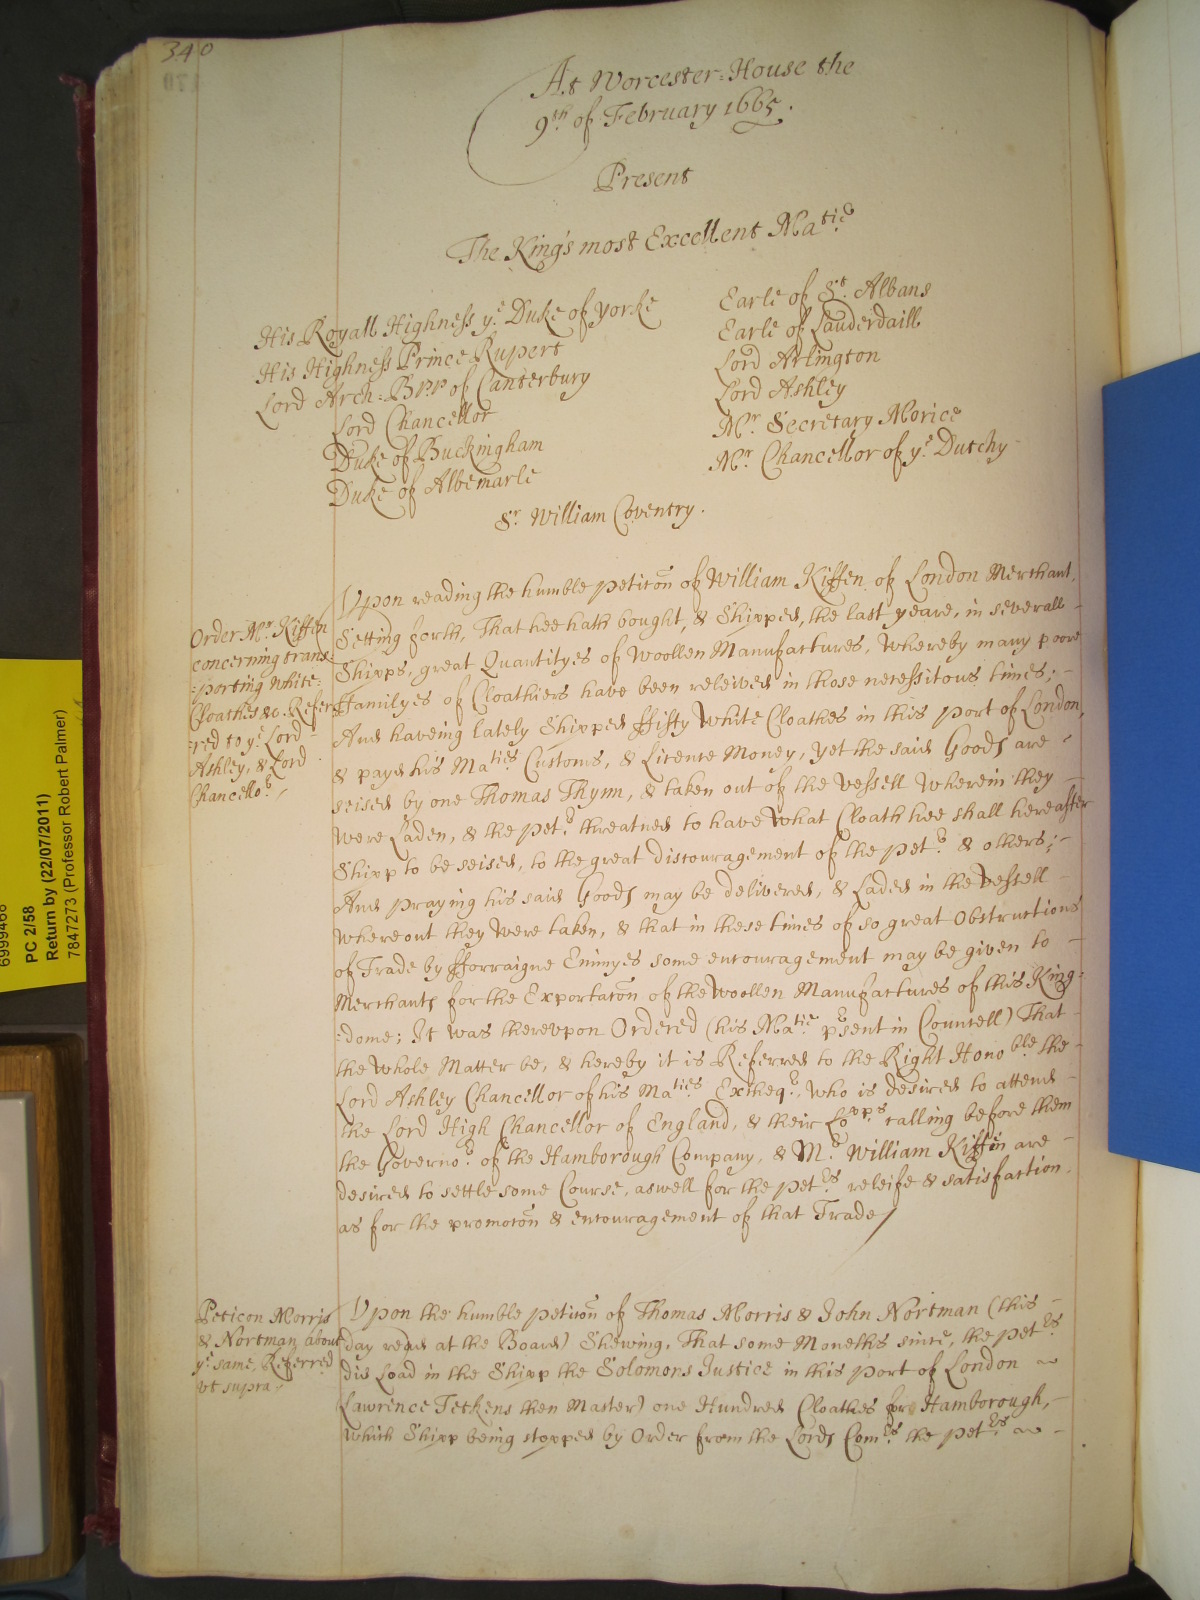 340
At Worcester=House the
9th of February 1665.
Present
The Kings most Excellent Matie
His Royall Highness ye Duke of Yorke
His Highness Prince Rupert
Lord Arch=Bpp of Canterbury
Lord Chancellor
Duke of Buckingham
Duke of Albemarle
Earle of St. Albans
Earle of Lauderdaill
Lord Arlington
Lord Ashley
Mr. Secretary Morice
Mr. Chancellor of ye Dutchy
Sr. William Coventry.
Order Mr. Kiffen
concerning trans=
=porting white=
Cloathes &c. Refer=
=red to ye Lord
Ashley, & Lord
Chancellor.
Upon reading the humble petitõn of William Kiffen of London Merchant,
Setting forth, That hee hath bought, & Shipped, the last yeare, in severall
Shipps, great Quantityes of Woollen Manufactures, whereby many poore
Familyes of Cloathiers have been releived in those necessitous times;
And haveing lately Shipped ffifty White Cloathes in this Port of London,
& payd his Maties Customs, & Licence Money, yet the said Goods are
seised by one Thomas Thynn, & taken out of the vessell wherein they
were Laden, & the petr. threatned to have what Cloath hee shall hereafter
Shipp to be seised, to the great discouragement of the petr. & others;
And praying his said Goods may be delivered, & Laded in the vessell
whereout they were taken, & that in these times of so great Obstructions
of Trade by fforraigne Enimyes some encouragement may be given to
Merchants for the Exportatõn of the Woollen Manufactures of this King=
=dome; It was thereupon Ordered (his Matie. present in Councell) That
the whole Matter be, & hereby it is Referred to the Right Honoble. the
Lord Ashley Chancellor of his Maties Excheqr., who is desired to attend
the Lord High Chancellor of England, & their Lopps calling before them
the Governor. of the Hamborough Company, & Mr. William Kiffin are
desired to settle some Course, aswell for the petrs. releife & satisfaction,
as for the promotõn & encouragement of that Trade/
Peticon Morris
& Nortman about
ye same, Referred
vt supra
Upon the humble petitõn of Thomas Morris & John Nortman (this
day read at the Board) Shewing, That some Moneths since, the petrs.
did Load in the Shipp the Solomons Justice in this Port of London
(Lawrence Teckens then Master) one Hundred Cloathes for Hamborough,
which Shipp being stopped by Order from the Lords Comrs. the petrs.
6999468
PC 2/58
Return by (22/07/2011)
7847273 (Professor Robert Palmer)